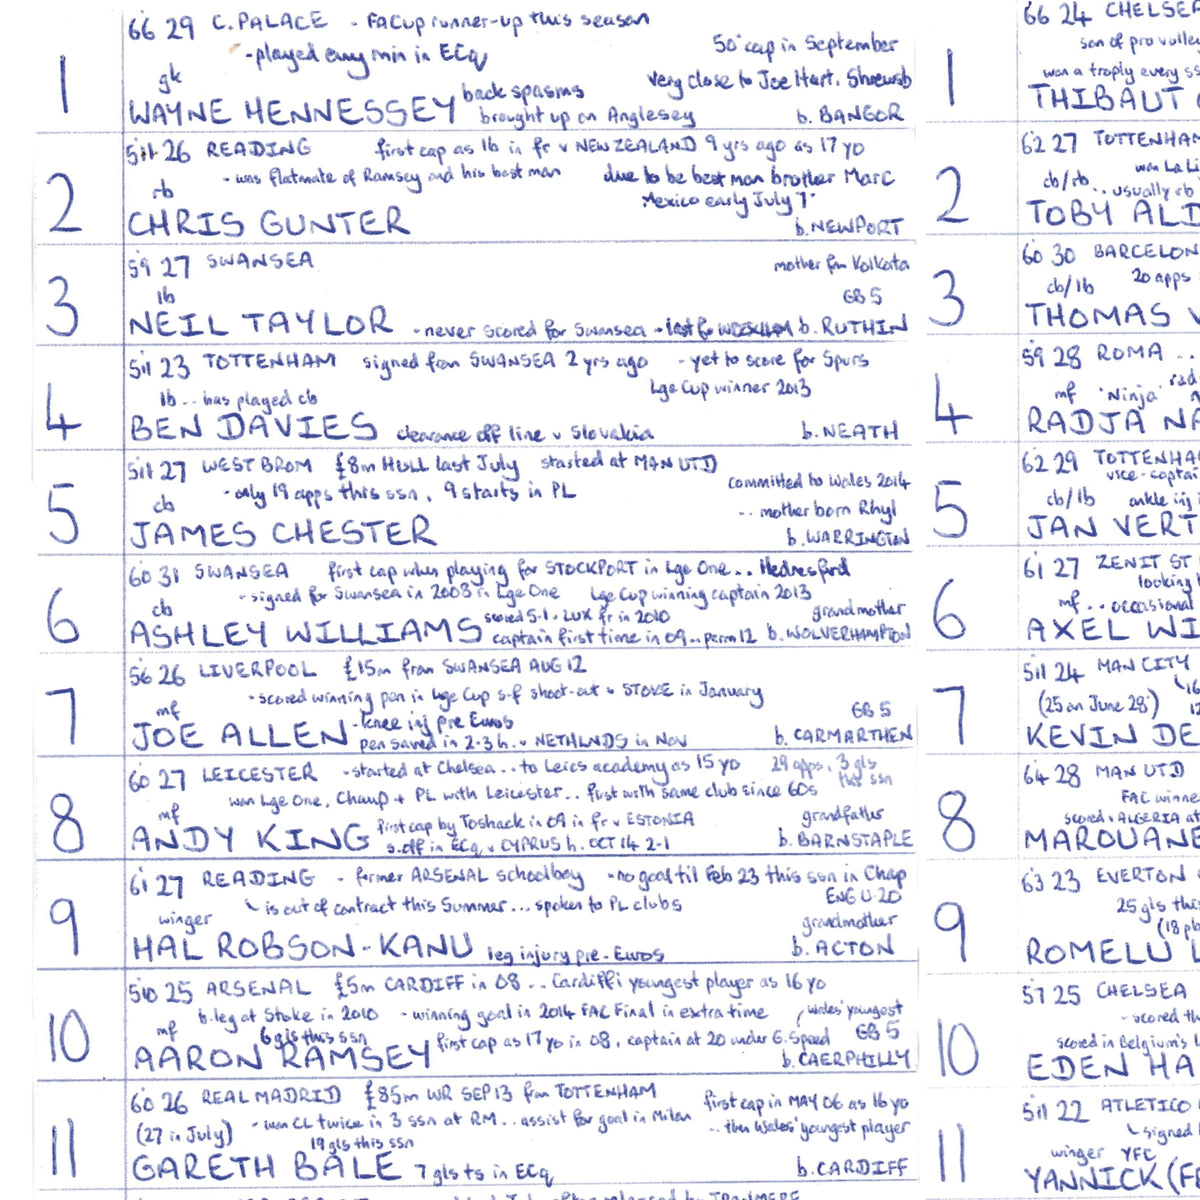 66 29 C. PALACE - FA Cup runner-up this season
-played every min in ECq
50th cap in September
gk
very close to Joe Hart. Shrewsb
1
WAYNE HENNESSEY back spasms
brought up on Anglesey b. BANGOR
5'11 26 READING first cap as lb in fr v NEW ZEALAND 9 yrs ago as 17 yo
- was flatmate of Ramsey and his best man due to be best man brother Marc
rb
Mexico early July 7
2
CHRIS GUNTER b. NEWPORT
59 27 SWANSEA mother fm Kolkata
lb GB 5
3
NEIL TAYLOR - never scored for Swansea - last for WREXHAM b. RUTHIN
5'11 23 TOTTENHAM signed from SWANSEA 2 yrs ago - yet to score for Spurs
lb .. has played cb Lge Cup winner 2013
4
BEN DAVIES clearance off line v Slovakia b. NEATH
5'11 27 WEST BROM £8m HULL last July started at MAN UTD
- only 19 apps this ssn, 9 starts in PL committed to Wales 2014
cb .. mother born Rhyl
5
JAMES CHESTER b. WARRINGTON
60 31 SWANSEA first cap when playing for STOCKPORT in Lge One .. Hednesford
- signed for Swansea in 2008 in Lge One Lge Cup winning captain 2013
cb scored 5-1 v LUX fr in 2010 grandmother
6
ASHLEY WILLIAMS captain first time in 09 .. perm 12 b. WOLVERHAMPTON
56 26 LIVERPOOL £15m from SWANSEA AUG 12
- scored winning pen in Lge Cup s-f shoot-out v STOKE in January
mf - knee inj pre Euros GB 5
7
JOE ALLEN pen saved in 2-3 h. v NETHLNDS in Nov b. CARMARTHEN
60 27 LEICESTER - started at Chelsea .. to Leics academy as 15 yo 29 apps, 3 gls this ssn
won Lge One, Champ + PL with Leicester .. first with same club since 60s
mf first cap by Toshack in 09 in fr v ESTONIA grandfather
8
ANDY KING s.off in ECq v CYPRUS h. OCT 14 2-1 b. BARNSTAPLE
61 27 READING - former ARSENAL schoolboy - no goal til Feb 23 this ssn in Chap
is out of contract this Summer ... spoken to PL clubs ENG U-20
winger grandmother
9
HAL ROBSON-KANU leg injury pre-Euros b. ACTON
510 25 ARSENAL £5m CARDIFF in 08 .. Cardiff's youngest player as 16 yo
b. leg at Stoke in 2010 - winning goal in 2014 FAC Final in extra time Wales' youngest
mf 6 gls this ssn GB 5
10
AARON RAMSEY first cap as 17 yo in 08, captain at 20 under G. Speed b. CAERPHILLY
60 26 REAL MADRID £85m WR SEP 13 from TOTTENHAM first cap in MAY 06 as 16 yo
(27 in July) - won CL twice in 3 ssn at RM .. assist for goal in Milan .. then Wales' youngest player
19 gls this ssn
11
GARETH BALE 7 gls ts in ECq b. CARDIFF
66 24 CHELSEA
son of pro volley
won a trophy every ss
1
THIBAUT
62 27 TOTTENHAM
won La Li
cb/rb .. usually rb
2
TOBY ALD
60 30 BARCELON
cb/lb 20 apps
3
THOMAS V
59 28 ROMA ..
mf 'Ninja' rad
4
RADJA NA
62 29 TOTTENHA
vice-captai
cb/lb ankle inj i
5
JAN VERT
61 27 ZENIT ST
looking
mf .. occasional
6
AXEL WI
511 24 MAN CITY
(25 on June 28)
7
KEVIN DE
64 28 MAN UTD
FAC winne
scored v ALGERIA at
8
MAROUANE
63 23 EVERTON
25 gls this
(18 pl
9
ROMELU L
57 25 CHELSEA
- scored th
scored in Belgium's
10
EDEN HA
511 22 ATLETICO
signed
winger YFC
11
YANNICK (F